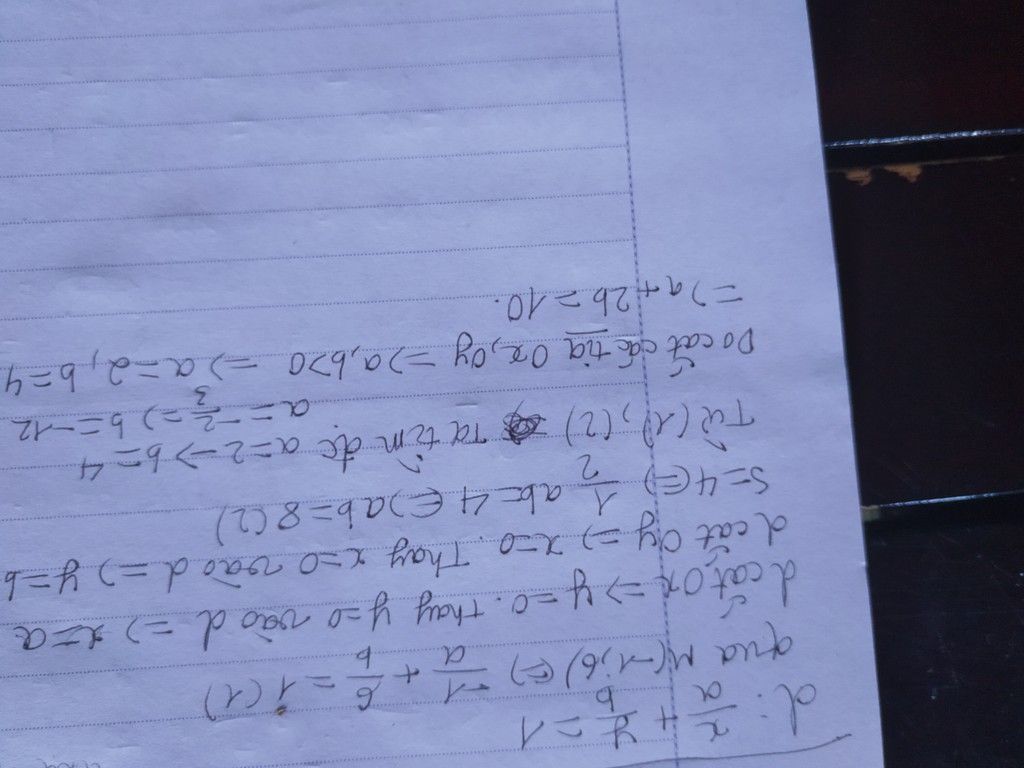 d: x/a + y/b = 1
qua M(-1;6) (=) -1/a + 6/b = 1 (1)
d cắt Ox => y=0. Thay y=0 vào d => x=a
d cắt Oy => x=0. Thay x=0 vào d => y=b
S=4 (=) 1/2 ab=4 (=) ab=8 (2)
Từ (1), (2) Ta tìm đc a=2 -> b=4
a=-2/3 => b=-12
Do cắt các tia Ox, Oy => a,b>0 => a=2, b=4
=> a+2b=10.